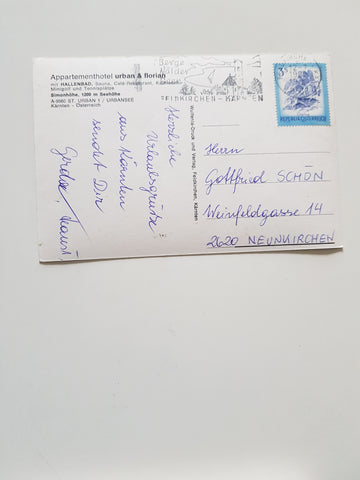 Appartementhotel urban & florian
mit HALLENBAD, Sauna, Café-Restaurant,
Minigolf und Tennisplätze
Simonhöhe, 1200 m Seehöhe
A-9560 ST. URBAN I / URBANSEE
Kärnten - Österreich
Herzliche
Urlaubsgrüße
aus Kärnten
sendet Dir
Berge
Bilder
FELDKIRCHEN - KÄRNTEN
REPUBLIK ÖSTERREICH
Druck und Verlag, Feldkirchen, Kärnten
Herrn
Gottfried SCHÖN
Weinfeldgasse 14
2620 NEUNKIRCHEN